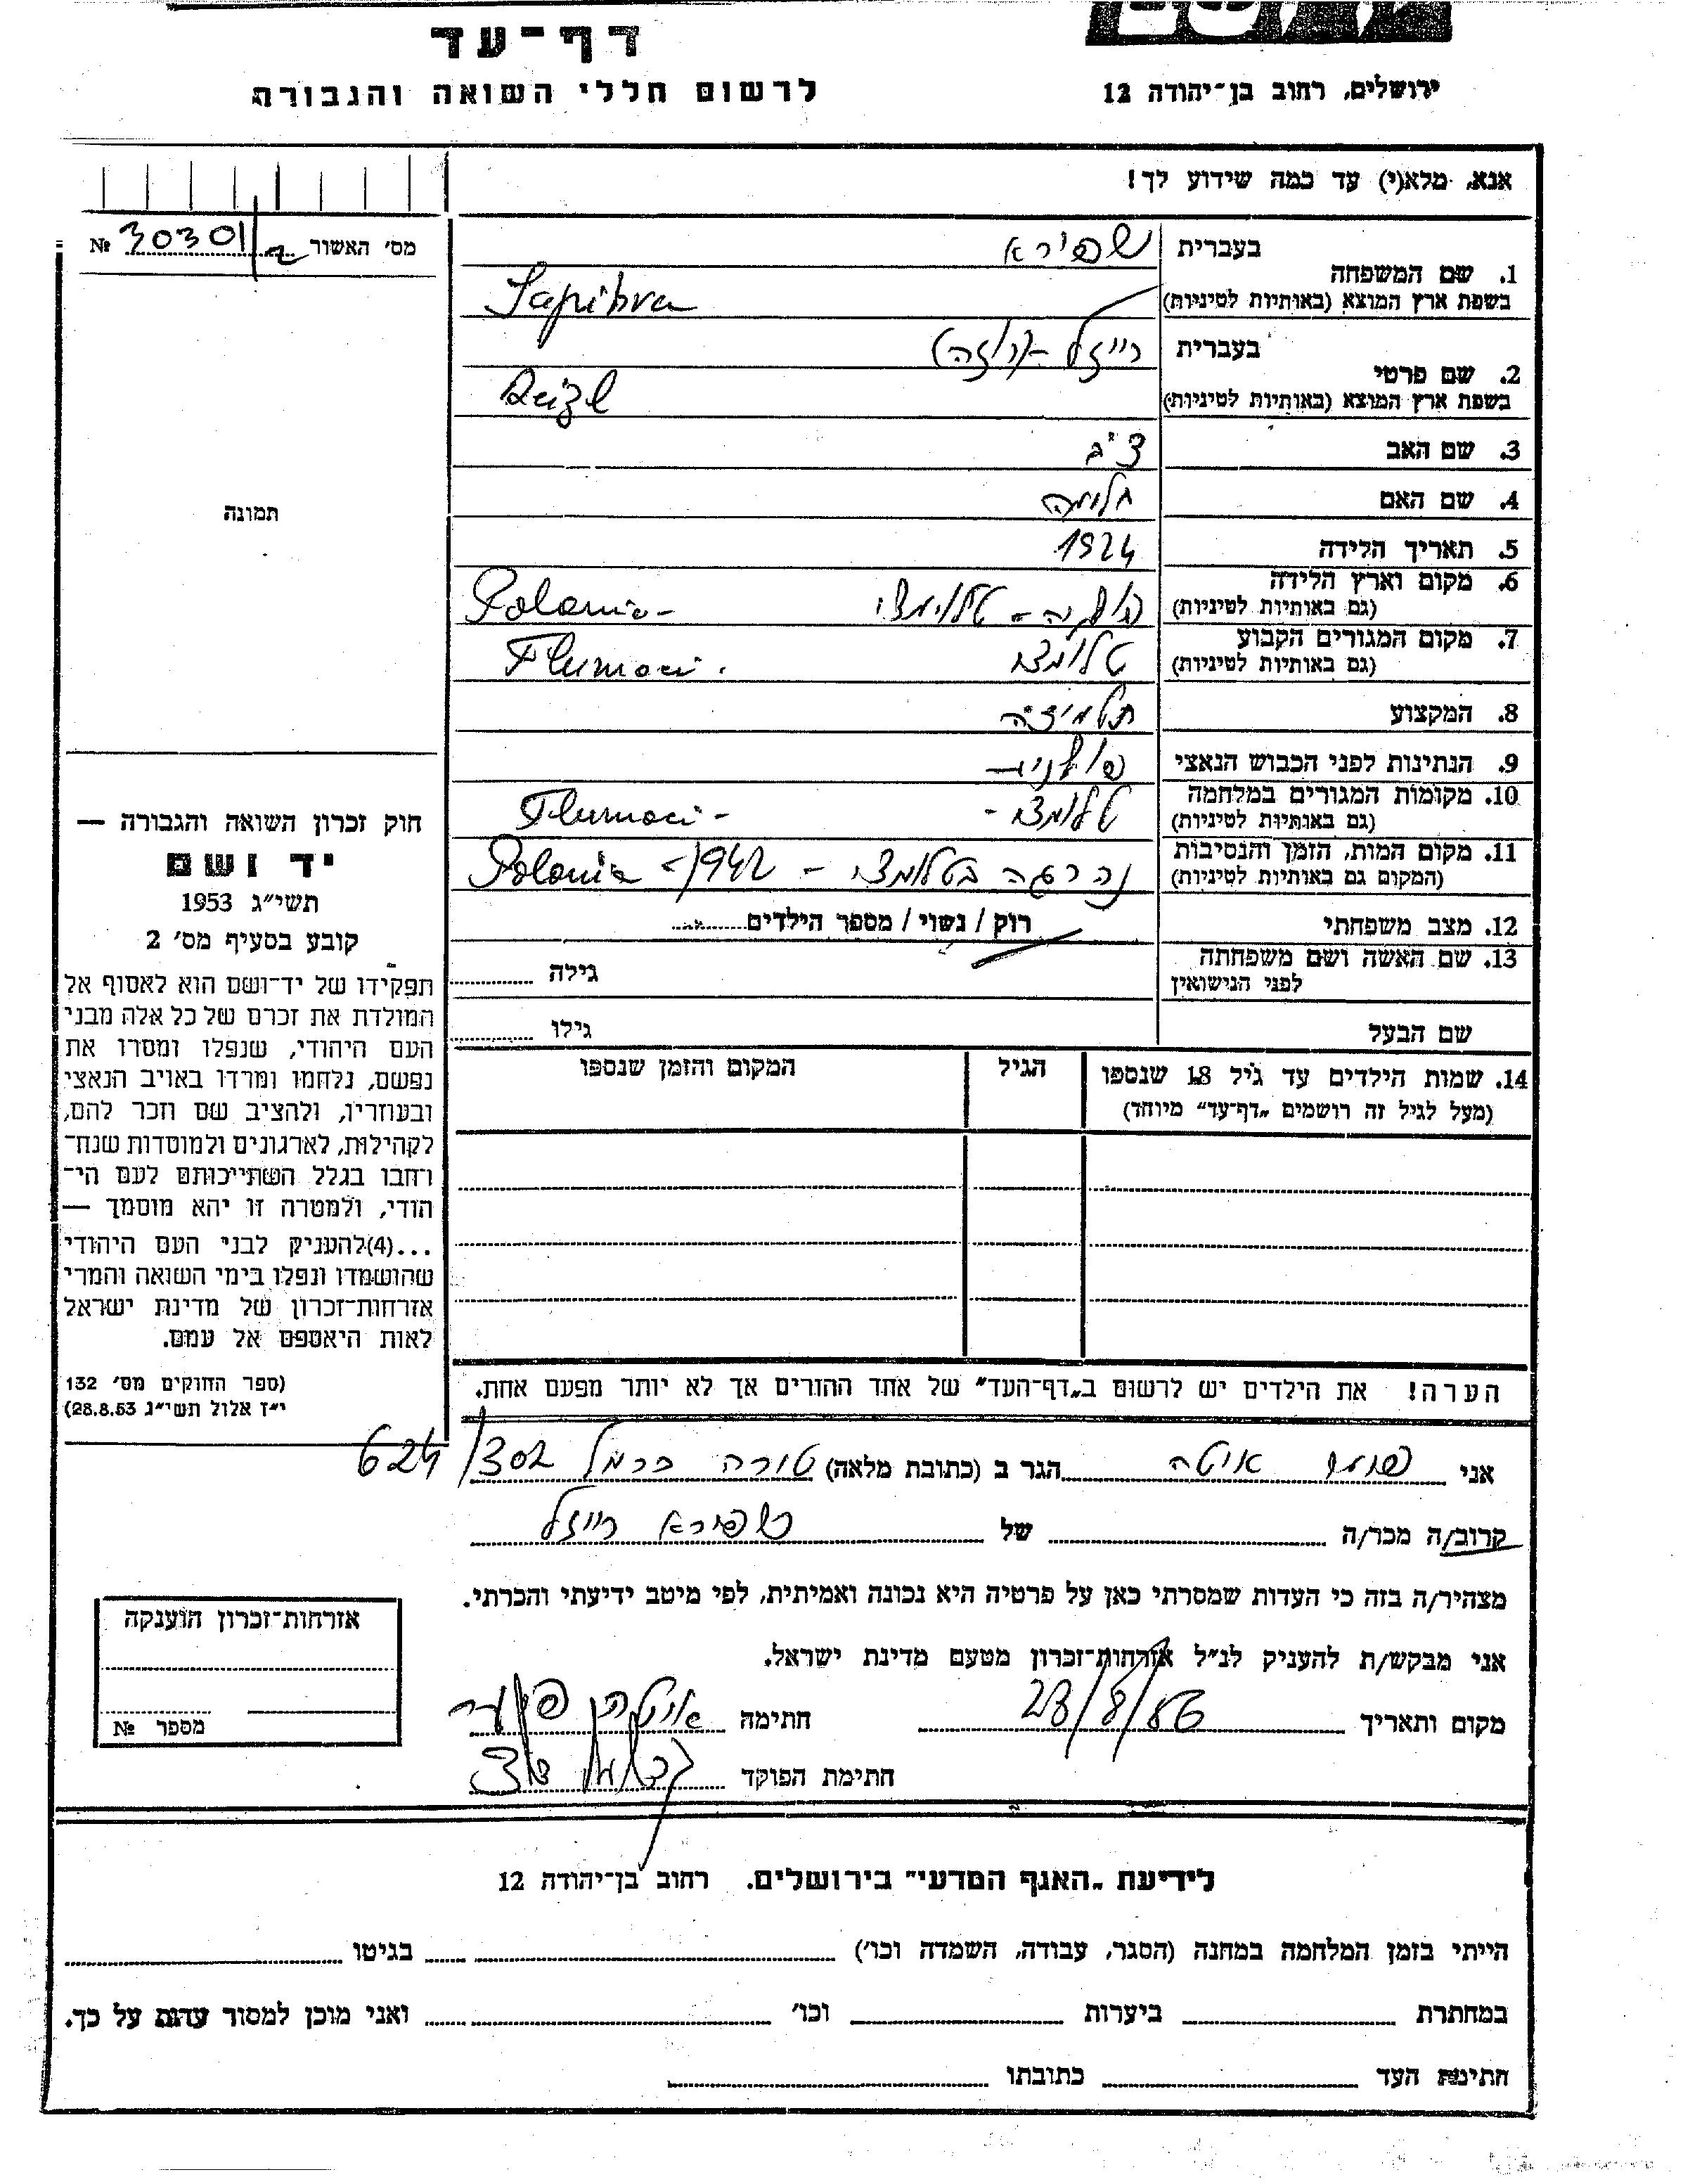 דף-עד
לרשום חללי השואה והגבורה
ירושלים, רחוב בן-יהודה 12
אנא, מלא(י) עד כמה שידוע לך!
מס׳ האשור 30301/2 №
תמונה
1. שם המשפחה
בעברית שפירא
בשפת ארץ המוצא (באותיות לטיניות)
2. שם פרטי
בעברית רייזל - (רוזה)
בשפת ארץ המוצא (באותיות לטיניות) Reizl
3. שם האב
4. שם האם
5. תאריך הלידה 1924
6. מקום וארץ הלידה Polonia-
(גם באותיות לטיניות)
7. מקום המגורים הקבוע
(גם באותיות לטיניות)
8. המקצוע תלמידה
9. הנתינות לפני הכבוש הנאצי פולנית
10. מקומות המגורים במלחמה
(גם באותיות לטיניות)
11. מקום המות, הזמן והנסיבות נהרגה בטלומצי - 1942 - Polonia
(המקום גם באותיות לטיניות)
12. מצב משפחתי רוק / נשוי / מספר הילדים
13. שם האשה ושם משפחתה
לפני הנישואין
גילה
שם הבעל
גילו
14. שמות הילדים עד גיל 18 שנספו
(מעל לגיל זה רושמים „דף-עד" מיוחד)
הגיל
המקום והזמן שנספו
חוק זכרון השואה והגבורה —
יד ושם
תשי״ג 1953
קובע בסעיף מס׳ 2
תפקידו של יד-ושם הוא לאסוף אל
המולדת את זכרם של כל אלה מבני
העם היהודי, שנפלו ומסרו את
נפשם, נלחמו ומרדו באויב הנאצי
ובעוזריו, ולהציב שם וזכר להם,
לקהילות, לארגונים ולמוסדות שנח-
ורחבו בגלל השתייכותם לעם הי-
הודי, ולמטרה זו יהא מוסמך —
...(4)להעניק לבני העם היהודי
שהושמדו ונפלו בימי השואה והמרי
אזרחות-זכרון של מדינת ישראל
לאות היאספם אל עמם.
(ספר החוקים מס׳ 132
י״ז אלול תשי״ג 28.8.53)
הערה! את הילדים יש לרשום ב„דף-העד" של אחד ההורים אך לא יותר מפעם אחת.
אני איטה הגר ב (כתובת מלאה) טירה כרמל 302/624
קרוב/ה מכר/ה של שפירא רייזל
מצהיר/ה בזה כי העדות שמסרתי כאן על פרטיה היא נכונה ואמיתית, לפי מיטב ידיעתי והכרתי.
אני מבקש/ת להעניק לנ״ל אזרחות-זכרון מטעם מדינת ישראל.
מקום ותאריך חתימה
חתימת הפוקד
אזרחות-זכרון הוענקה
מספר №
לידיעת „האגף המדעי" בירושלים. רחוב בן-יהודה 12
הייתי בזמן המלחמה במחנה (הסגר, עבודה, השמדה וכו׳) בגיטו
במחתרת ביערות וכו׳ ואני מוכן למסור עדות על כך.
חתימת העד כתובתו